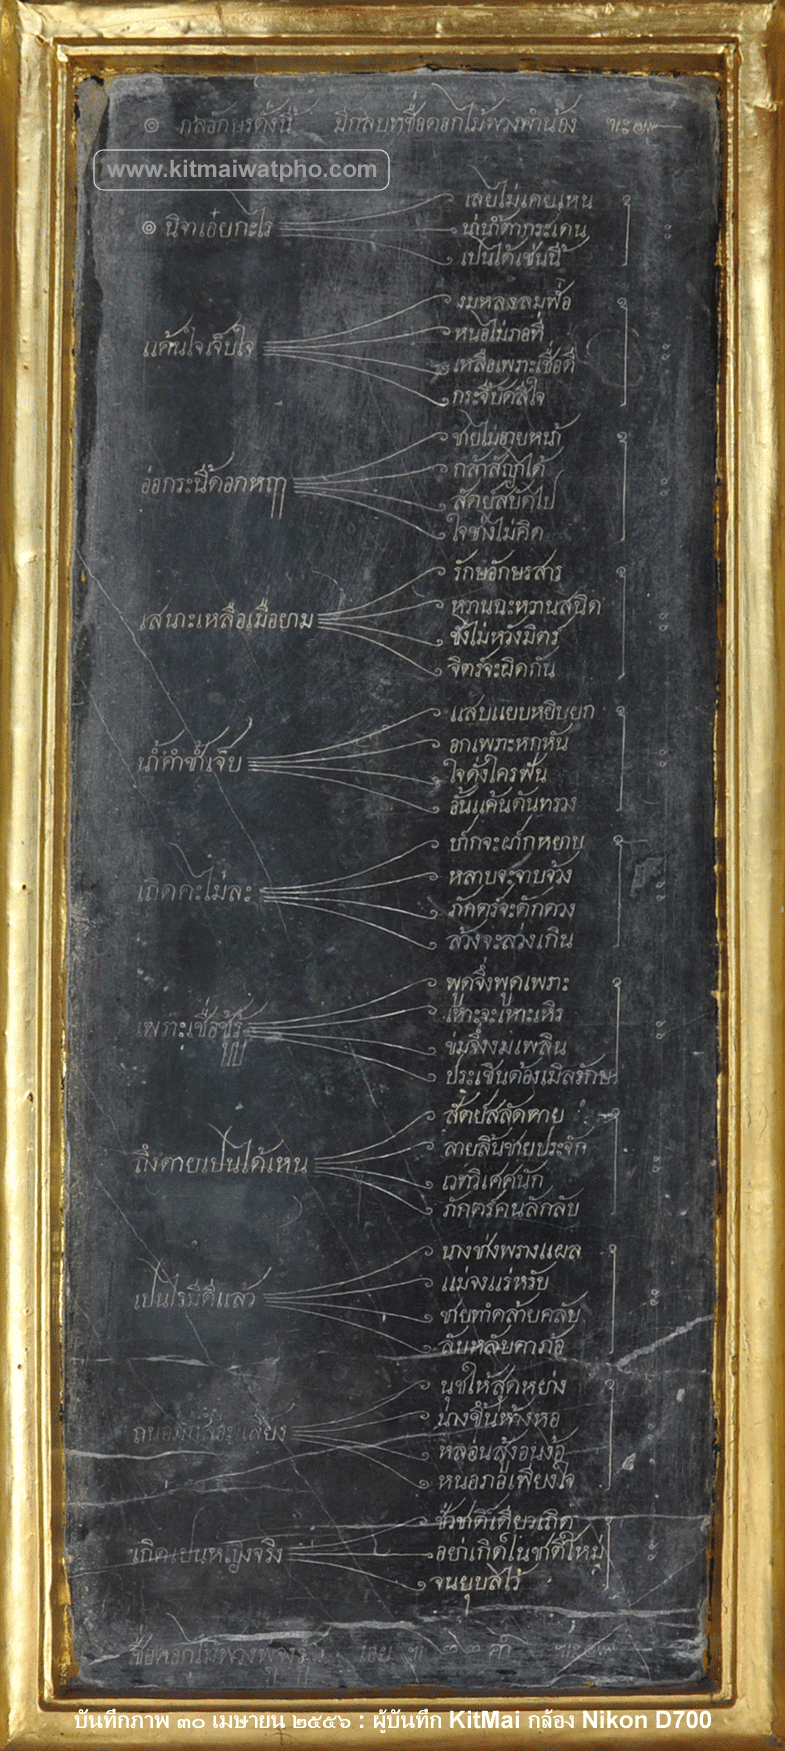 ๏ กลอักษรดั่งนี้ มีกลบทชื่อดอกไม้พวงคำน้อง
www.kitmaiwatpho.com
๏ นิจาเอ๋ยกะไร
เลยไม่เคยเหน
เปนได้เช่นนี้
แค้นใจเจ็บใจ
งมหลงลมพ้อ
หนอไม่ภอที่
เหลือเพราะเชื่อดี
อ่อกระนี้ดอกหฤๅ
ชายไม่อายหน้า
กล้าสัญาได้
สัตย์สบัดไป
ใจช่างไม่คิด
เสนาะเหลือเมื่อยาม
รักษอักษรสาร
หวานฉะหวานสนิด
ชั่งไม่หวังมิตร
จิตร์จะผิดกัน
น้ำคำช้ำเจ็บ
แสบแยบหยิบยก
อกเพราะหกหัน
ใจดั่งใครฟัน
อั้นแค้นตันทรวง
เถิดคะไม่ละ
หลาบจะจาบจ้วง
ภักตร์จะตักตวง
ล้วงจะล่วงเกิน
เพราะเชื่อชู้รู้
พูดจึ่งพูดเพราะ
เหาะจะเหาะเหิร
ประเชินต้องเมิลรักษ
ถึงตายเปนได้เหน
สัตย์สลัดตาย
ลายลิ้นชายประจัก
เวทวิเศศนัก
ภักตร์คนลักลับ
เปนไรมีดีแล้ว
นางช่างพรางแผล
แม่จงแร่หรับ
ชายทำคล้ายคลับ
ลับหลับตาภ้อ
นุชให้สุดหย่าง
นางขึ้นห้างหอ
หนอภอเพียงใจ
เกิดเปนหญิงจริง
ชั่วชาติเดียวเถิด
อย่าเกิดในชาติใหม่
บันทึกภาพ ๓๐ เมษายน ๒๕๕๖ : ผู้บันทึก KitMai กล้อง Nikon D700